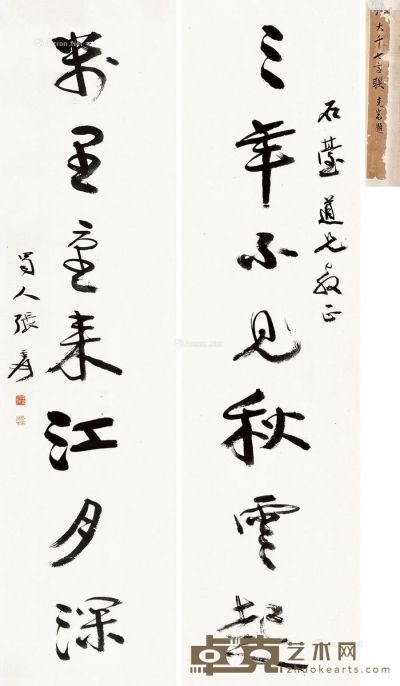 大千七言聯
石臺道兄教正
三年不見秋雲起
萬里重來江月深
蜀人張爰
卓克艺术网
zhuokearts.com